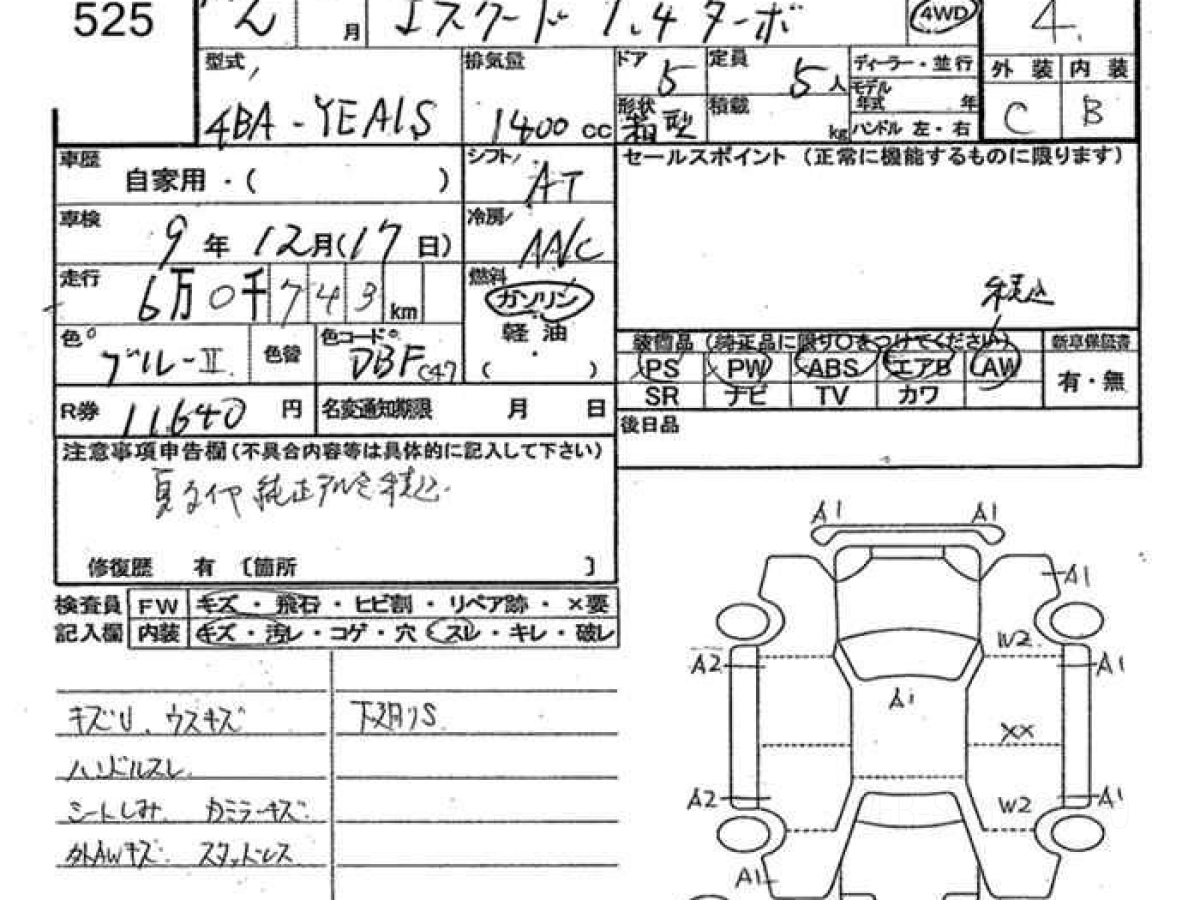 525 2 月 エスクード 1.4ターボ 4WD 4
型式 4BA-YEA1S 排気量 1400 cc ドア 5 定員 5人 ディーラー・並行
モデル年式 年 外装 内装
形状 箱型 積載 kg ハンドル 左・右 C B
車歴 自家用・( ) シフト AT セールスポイント (正常に機能するものに限ります)
車検 9年12月(17日) 冷房 AAC
走行 6万0千743km 燃料 ガソリン 税込
色 ブルーII 色替 色コード DBF C47 軽油 ( )
装備品 (純正品に限り○をつけてください) 新車保証書
PS PW ABS エアB AW 有・無
SR ナビ TV カワ
R券 11640 円 名変通知期限 月 日
後日品
注意事項申告欄(不具合内容等は具体的に記入して下さい)
夏タイヤ 純正アルミ 積込
修復歴 有 〔箇所 〕
検査員 FW キズ・飛石・ヒビ割・リペア跡・×要
記入欄 内装 キズ・汚レ・コゲ・穴 スレ・キレ・破レ
キズU. ウスキズ 下廻りS
ハンドルスレ
シートしみ. カミラーキズ
外AWキズ. スタッドレス
A1 A1
A1
W2
A2 A1
A1
XX
A2 W2 A1
A1